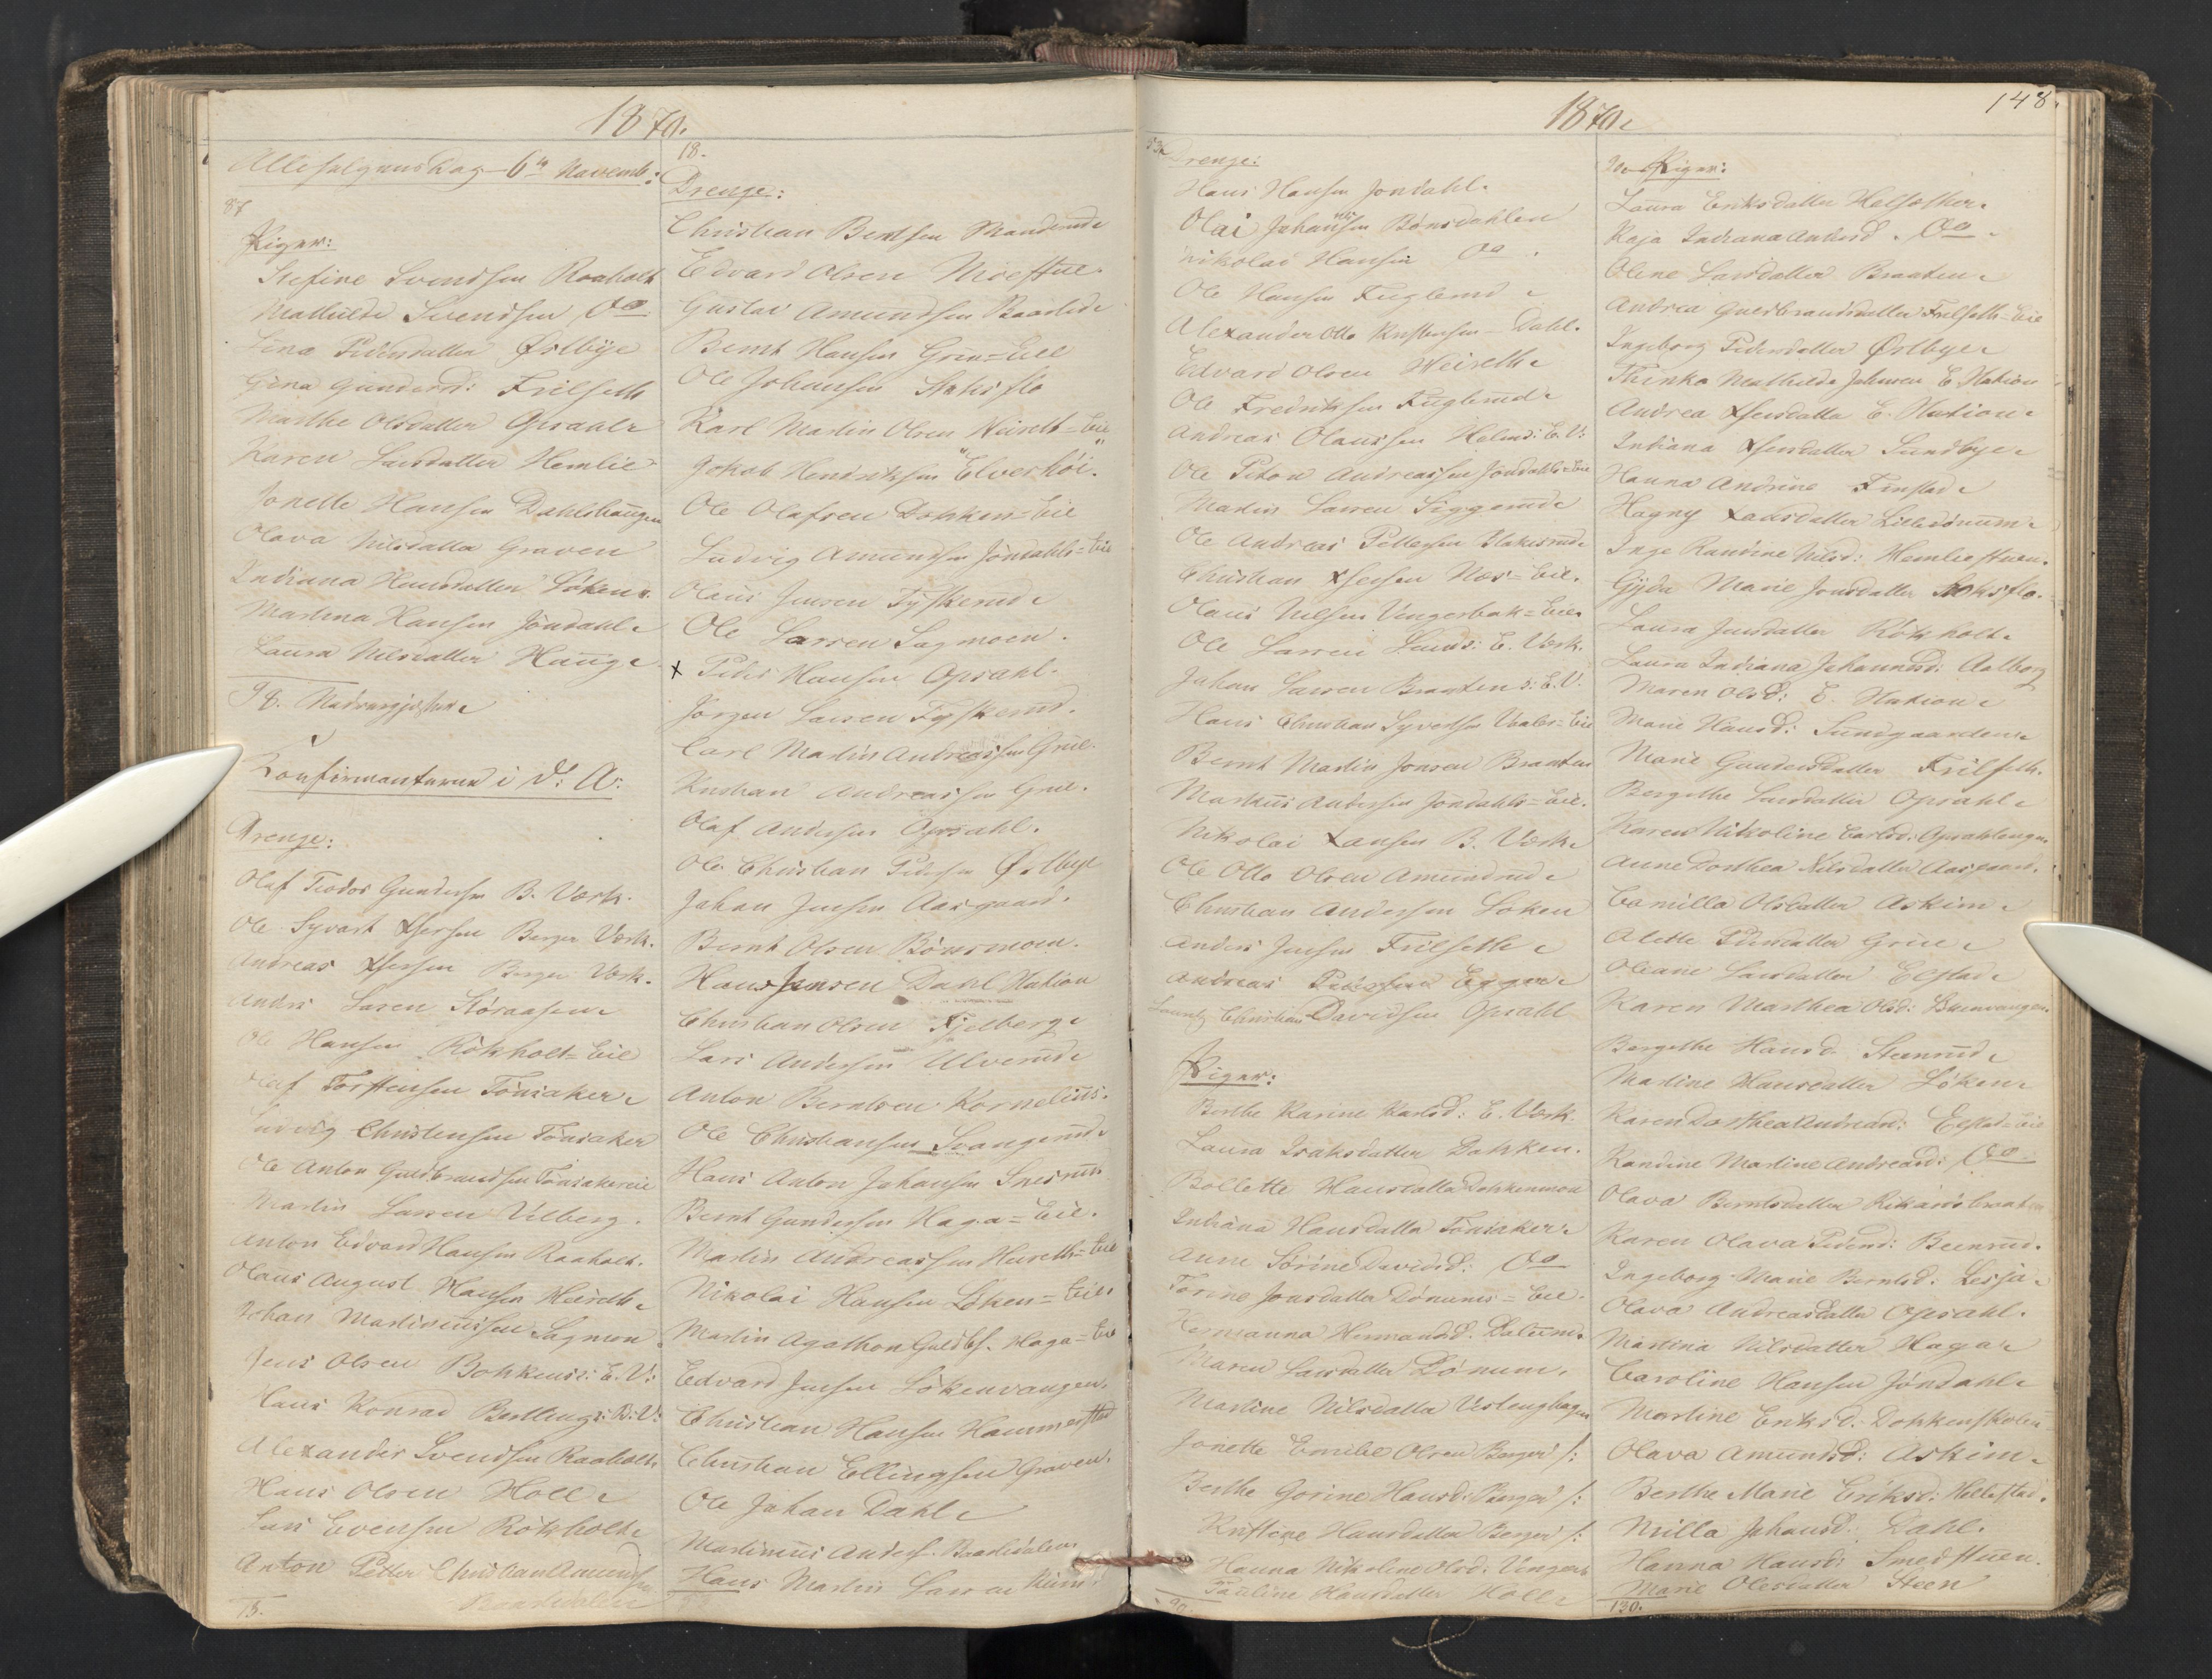 1870.
Allehelgensdag 6te Novemb:
87
Piger:
Stefine Svendsen Raaholt
Mathilde Svendsen Do
Lina Pedersdatter Østbye
Gina Gundersd: Frilseth
Marthe Olsdatter Opsahl
Karen Larsdatter Hemlie
Jonette Hansen Dahlshaugen
Olava Nilsdatter Graven
Indiana Hansdatter Løken
Martina Hansen Jøndahl
Laura Nilsdatter Haug
98.
Konfirmanterne i D: A:
Drenge:
Olaf Teodor Gundersen B. Værk.
Ole Syvert Ihersen Berger Værk.
Andreas Ihersen Berger Værk.
Anders Larsen Støraasen
Ole Hansen Rökholt-Eie
Olaf Torstensen Tönsaker
Ludvig Christensen Tönsaker
Ole Anton Guldbrandsen Tönsakereie
Martin Larsen Vilberg.
Anton Edvard Hansen Raaholt.
Olaus August Hansen Weiseth
Johan Martiniussen Sagmoen
Jens Olsen Bakkens: E. V:
Hans Konrad Bertling s: B: V:
Alexander Svendsen Raaholt
Hans Olsen Holl
Lars Evensen Rökholt
Anton Petter Christian Amundsen
Baardsdalen
15.
18.
Drenge:
Christian Berntsen Manderud
Edvard Olsen Moestue
Gustav Amundsen Baarlid
Bernt Hansen Grue-Eie
Ole Johansen Stoksflo
Karl Martin Olsen Weiseth-Eie
Jakob Hendriksen "Elverhöi."
Ole Olafsen Dokken-Eie
Ludvig Amundsen Jöndahls-Eie
Olaus Jensen Tyskerud
Ole Larsen Sagmoen.
x Peder Hansen Opsahl.
Jörgen Larsen Tyskerud.
Carl Martin Andreassen Grue.
Kristian Andreassen Grue.
Olaf Andersen Opsahl.
Ole Christian Pedersen Østbye
Johan Jensen Aasgaard.
Bernt Olsen Bönsmoen.
Hans Jensen Dahl Station
Christian Olsen Fjelberg
Lars Andersen Ulverud
Anton Berntsen Kornelius.
Ole Christiansen Svangerud
Hans Anton Johansen Snesrud
Bernt Gundersen Haga-Eie.
Martin Andreassen Weiseth-Eie
Nikolai Hansen Löken-Eie
Martin Agathon Guldbs. Haga-Eie
Edvard Jensen Lökenvangen.
Christian Hansen Hammerstad
Christian Ellingsen Graven.
Ole Johan Dahl
Martinius Anders. Baardsdalen
Hans Martin Larsen
1870.
148.
53.
Drenge:
Hans Hansen Jöndahl.
Olai Johansen Bönsdahlen
Nikolai Hansen Do.
Ole Hansen Fuglerud
Alexander Otto Kristensen - Dahl.
Edvard Olsen Weiseth
Ole Fredriksen Fuglerud
Andreas Olaussen Holms: E. V:
Ole Peton Andreassen Jöndahls-Eie
Martin Larsen Siggerud
Ole Andreas Pettersen Blakisrud
Christian Ihersen Næs-Eie.
Olaus Nilsen Vingerbak-Eie
Ole Larsen Lunds: E. Værk.
Johan Larsen Braaten s: E. V.
Hans Christian Syversen Vaalen-Eie
Bernt Martin Jonsen Braaten
Markus Andersen Jöndahls-Eie.
Nikolai Larsen B. Værk
Ole Otto Olsen Amundrud
Christian Andersen Løken
Anders Jensen Frilseth
Andreas Pedersen Egge
Lauritz Christian Davidsen Opsahl
Piger:
Berthe Karine Karlsd: E. Værk.
Laura Isaksdatter Dokken.
Bollette Hansdatter Dokkenmoen
Indiana Hansdatter Tönsaker.
Anne Sörine Davidsd: Do
Torine Jonsdatter Dönnums-Eie.
Hermanna Hermandsd: Dalum.
Maren Larsdatter Dönum.
Martine Nilsdatter Vestenghagen
Jonette Emilie Olsen Berger /:
Berthe Gorine Hansd: Berger /:
Kristine Hansdatter Berger /:
Hanna Nikoline Olsd: Vinger
Pauline Hansdatter Holl
90.
90. Piger:
Laura Eriksdatter Helsether.
Kaja Indiana Andersd. Do.
Oline Larsdatter Braaten.
Andrea Guldbrandsdatter Frilseth-Eie
Ingeborg Pedersdatter Østbye
Thinka Mathilde Johnsen E. Station
Andrea Ihersdatter E. Station.
Indiana Ihersdatter Sundbye
Hanna Andrine Finstad
Hagny Larsdatter Lilledönnum.
Inge Randine Nilsd: Hemliestuen.
Gyda Marie Jonsdatter Stoksflo.
Laura Jensdatter Rökholt.
Laura Indiana Johannesd: Aalborg
Maren Olsd: E. Station
Marie Hansd: Sundgaarden
Marie Gundersdatter Frilseth.
Bergethe Larsdatter Opsahl
Karen Nikoline Carlsd: Opsahlengen
Anne Dorthea Nilsdatter Aasgaard.
Camilla Olsdatter Askim
Alette Pedersdatter Grue
Oleane Larsdatter Elstad
Karen Marthea Olsd:
Bergethe Hansd. Steenrud
Martine Hansdatter Löken
Karen Dorthea Andreasd: Elstad-Eie
Randine Martine Andreasd: Do.
Olava Berntsdatter Rikardsbraaten
Karen Olava Pedersd: Beenrud.
Ingeborg Marie Berntsd: Lesja
Olava Andreasdatter Opsahl.
Martina Nilsdatter Haga
Caroline Hansen Jöndahl
Martine Eriksd: Dokkenskolen
Olava Amundsd: Askim
Berthe Marie Eriksd: Hollestad.
Milla Johansd: Dahl.
Hanna Hansd: Smedstuen.
Marie Olesdatter Steen
130.